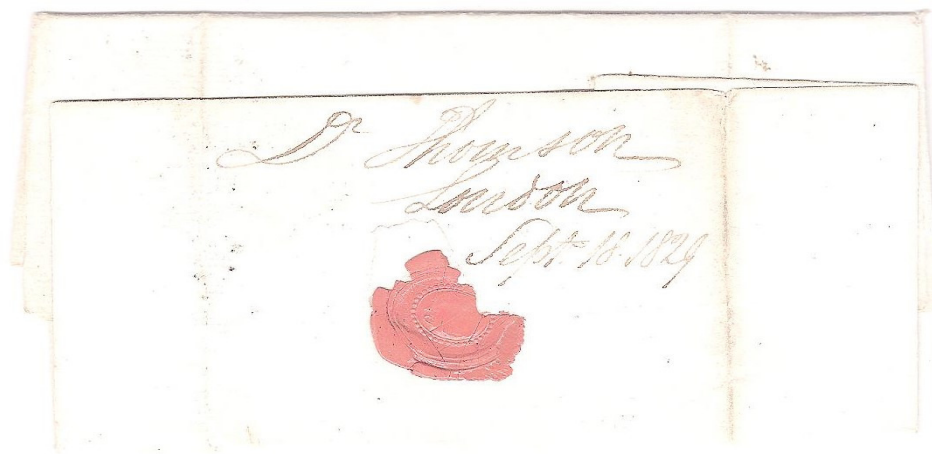 Dr Thomson
London
Sept. 18. 1829